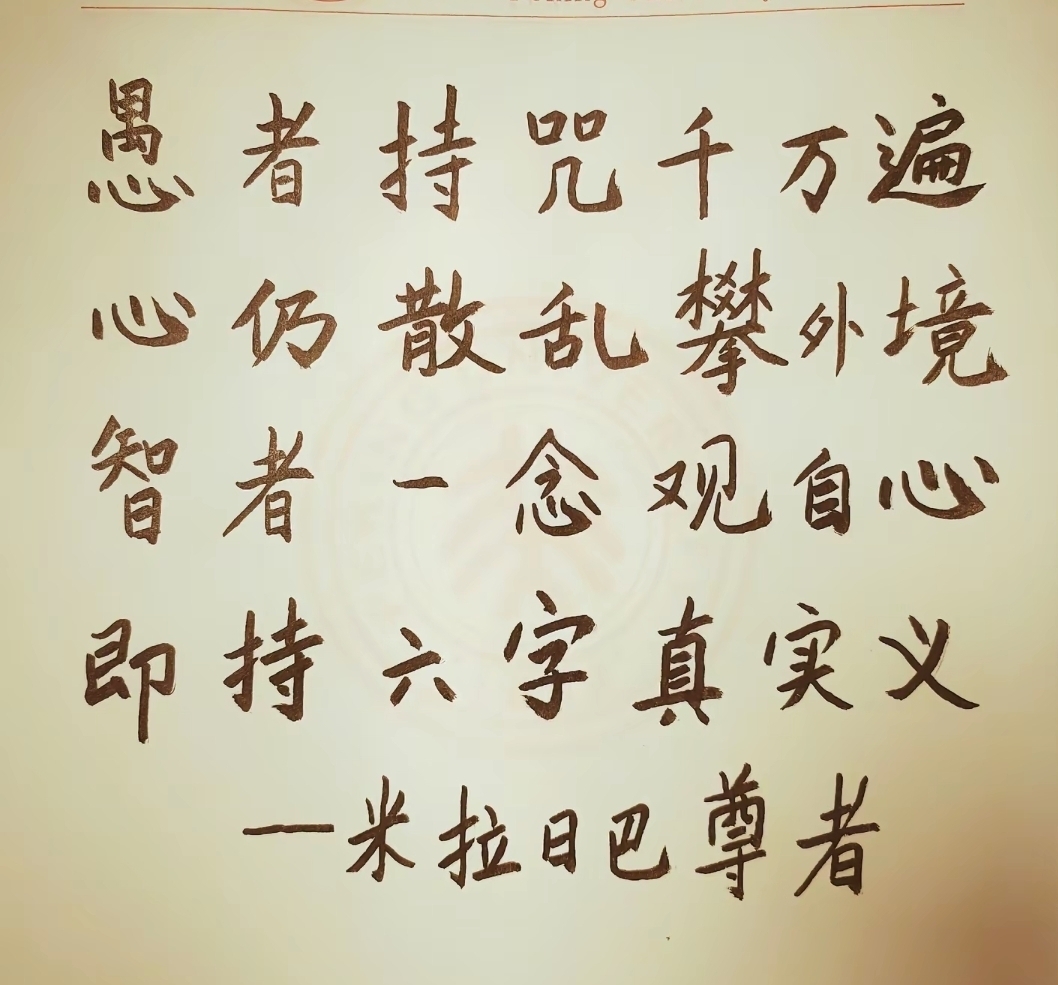 愚者持咒千万遍
心仍散乱攀外境
智者一念观自心
即持六字真实义
—米拉日巴尊者